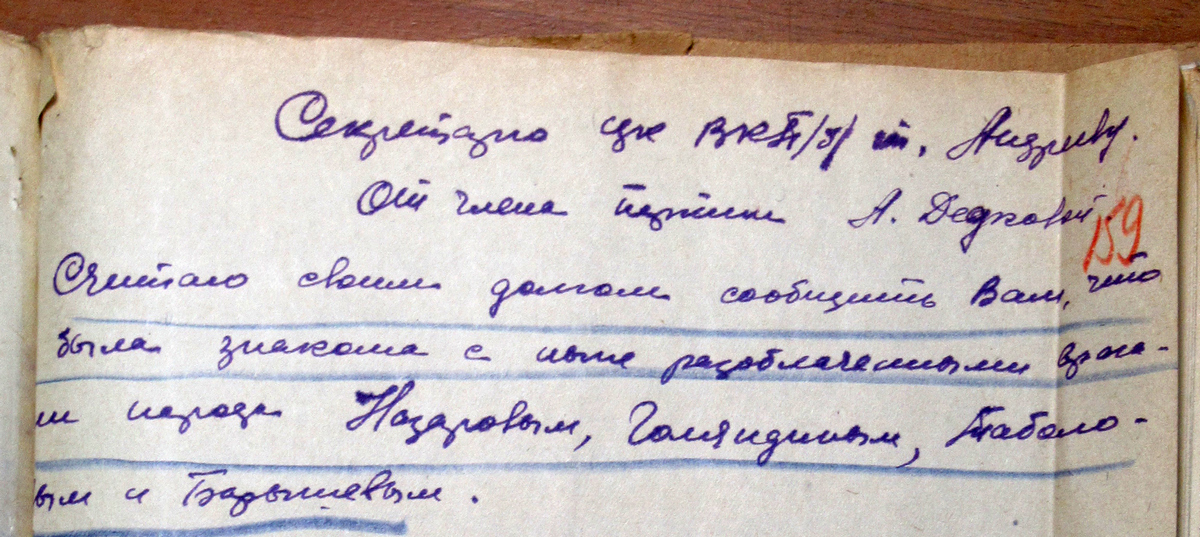 Секретарю ЦК ВКП/б/ т. Андрееву.
От члена партии А. Дедковой
159
Считаю своим долгом сообщить Вам, что
была знакома с ныне разоблаченными врага-
ми народа Назаровым, Голяндиным, Таболо-
вым и Барышевым.